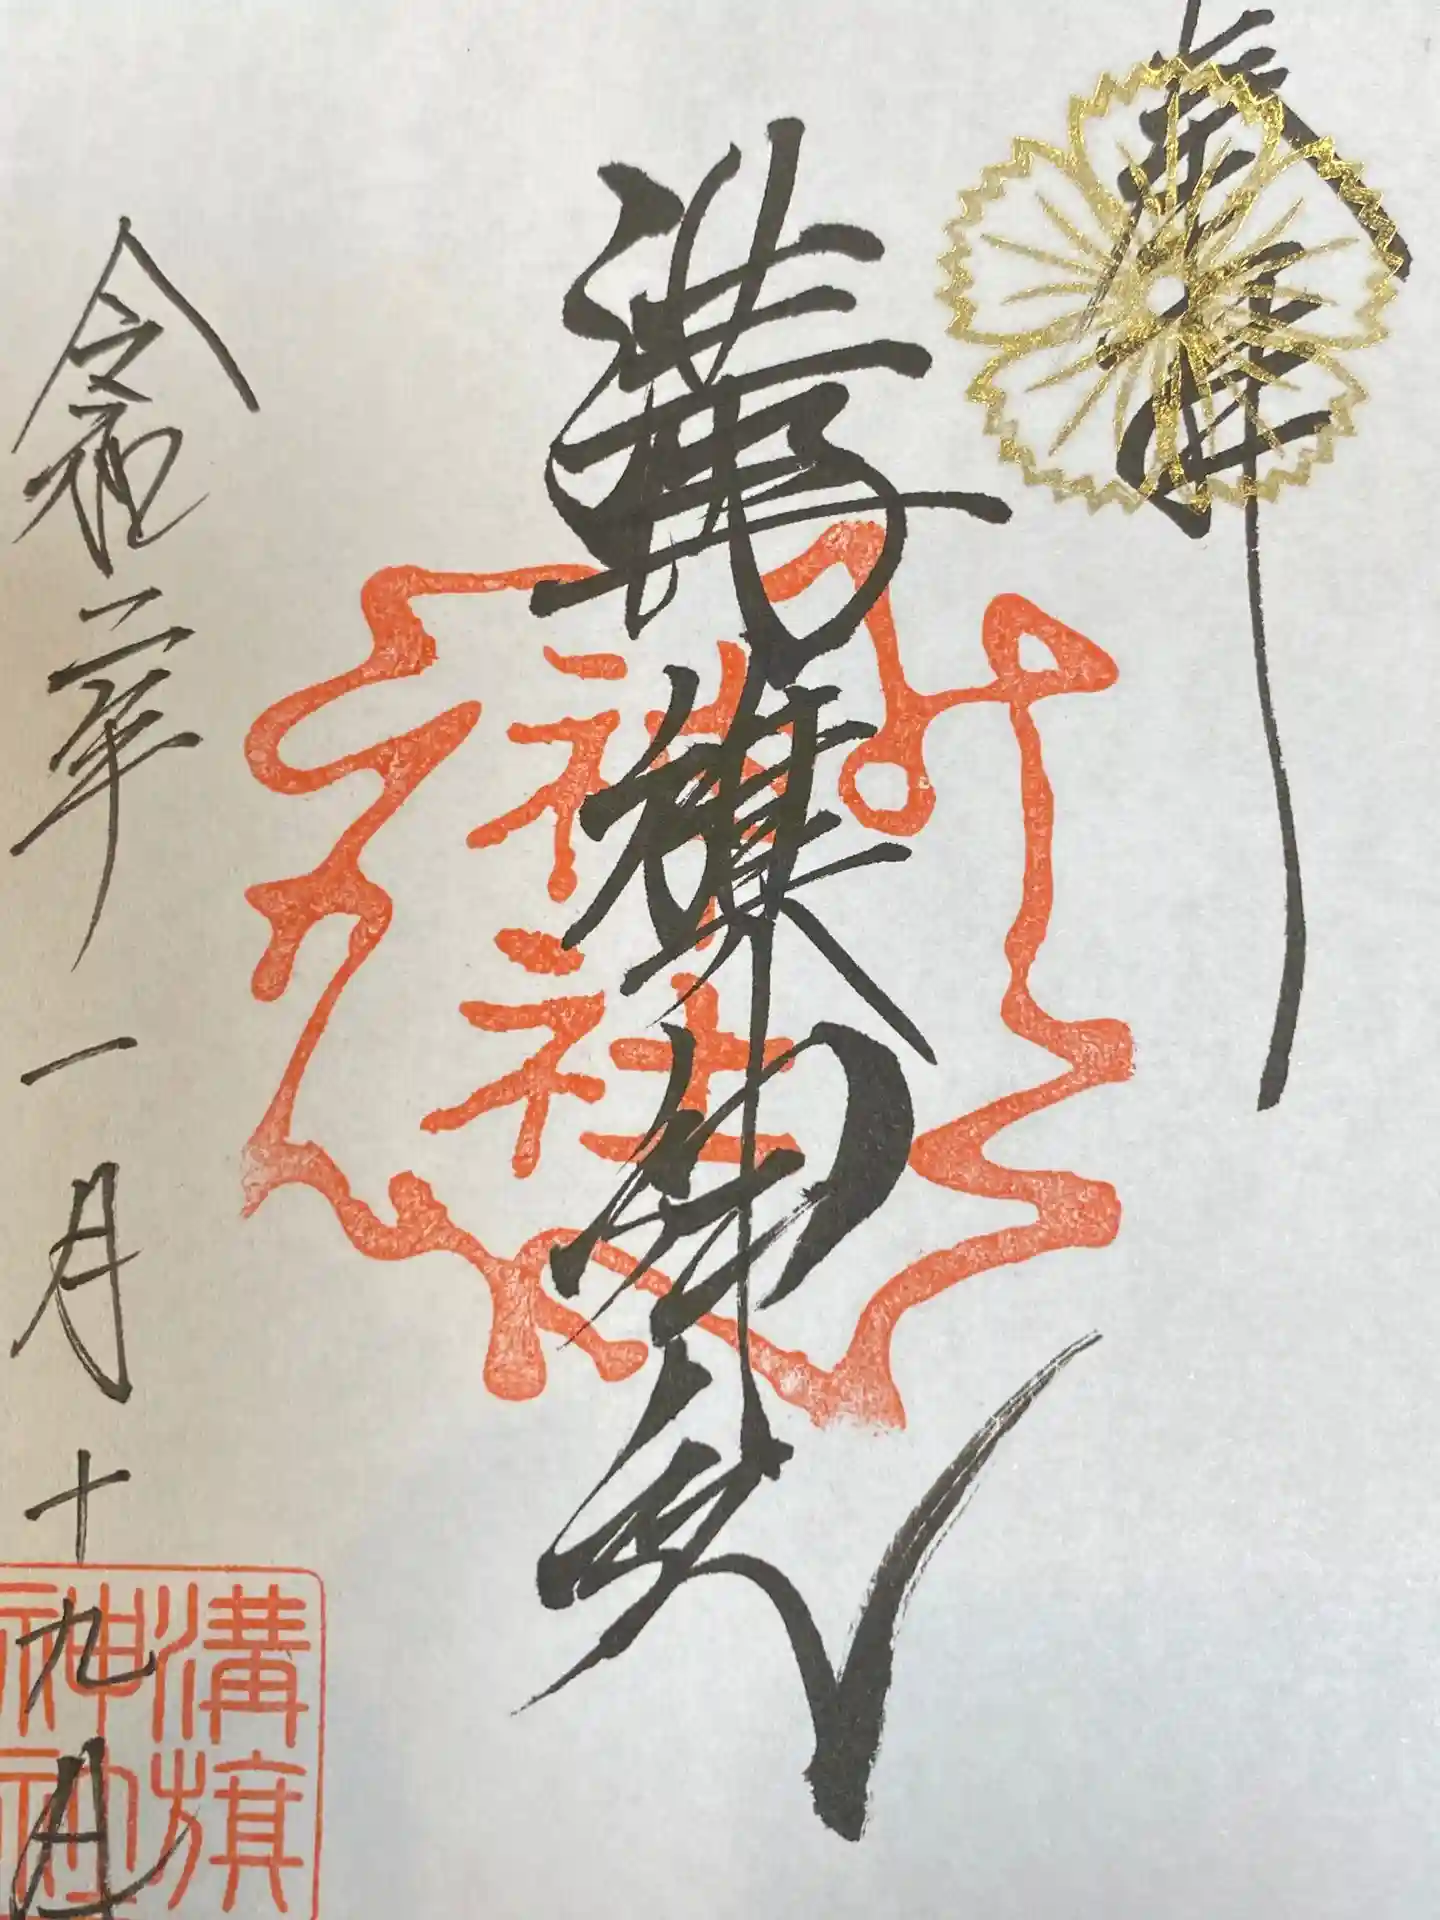 奉拝
溝旗神社
神社
令和二年一月十九日
溝旗
神社